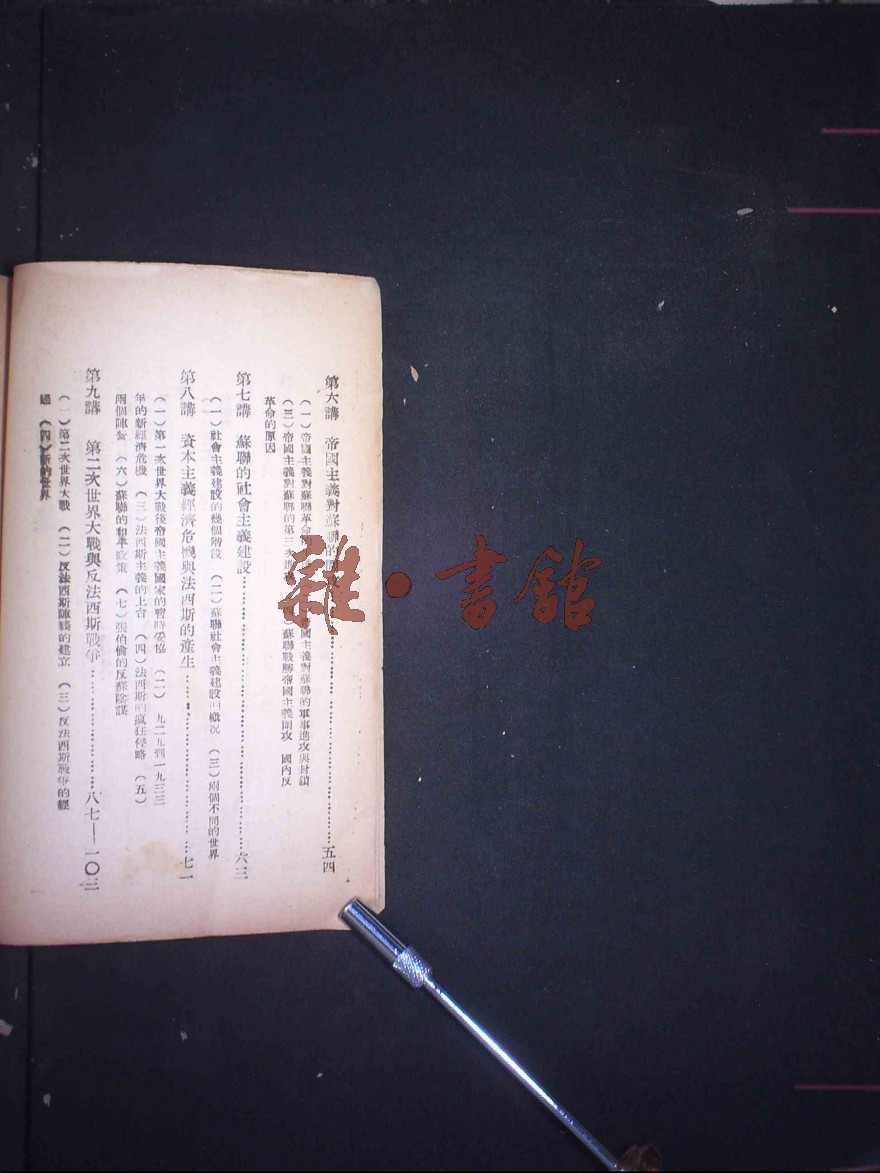 第六講　帝國主義對蘇聯的…………………五四
（一）帝國主義對蘇聯革命的　帝國主義對蘇聯的軍事進攻與封鎖
（三）帝國主義對蘇聯的第三次進　（四）蘇聯戰勝帝國主義圍攻　國內反
革命的原因
第七講　蘇聯的社會主義建設…………………六三
（一）社會主義建設的幾個階段　（二）蘇聯社會主義建設的概况　（三）兩個不同的世界
第八講　資本主義經濟危機與法西斯的產生…………………七一
（一）第一次世界大戰後帝國主義國家的暫時妥協　（二）　九二九到一九三三
年的新經濟危機　（三）法西斯主義的上台　（四）法西斯的瘋狂侵略　（五）
兩個陣營　（六）蘇聯的和平政策　（七）張伯倫的反蘇陰謀
第九講　第二次世界大戰與反法西斯戰爭…………………八七——一〇三
（一）第二次世界大戰　（二）反法西斯陣綫的建立　（三）反法西斯戰爭的經
過　（四）新的世界
雜・書館